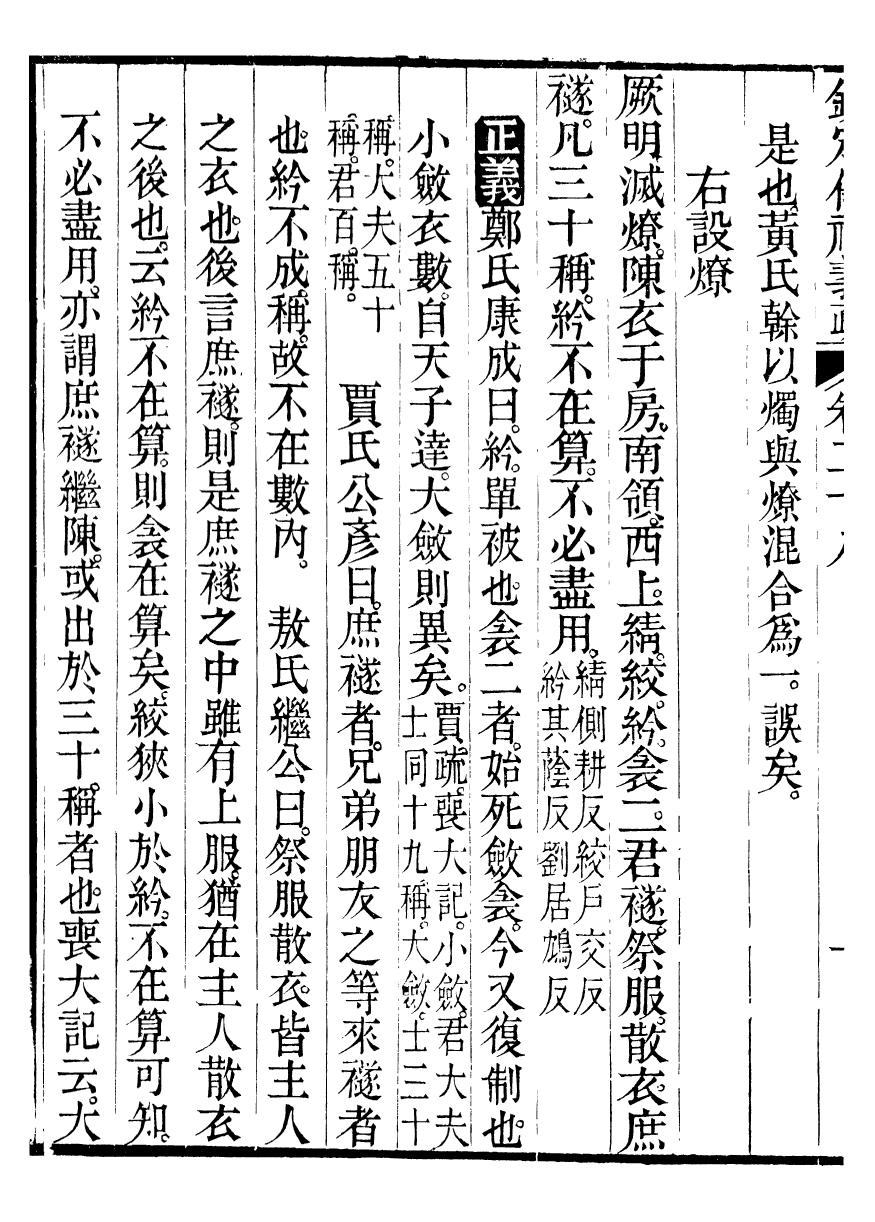 是也。黃氏榦以燭與燎混合爲一。誤矣。
右設燎
厥明。滅燎。陳衣于房。南領。西上。綪。絞。紟。衾二。君襚。祭服。散衣。庶
襚。凡三十稱。紟不在算。不必盡用。綪側耕反絞戶交反
紟其蔭反劉居鴆反
正義鄭氏康成曰。紟。單被也。衾二者。始死斂衾。今又復制也。
小斂衣數。自天子達。大斂則異矣。賈疏。喪大記。小斂。君大夫
士同十九稱。大斂。士三十
稱。大夫五十
稱。君百稱。
賈氏公彥曰。庶襚者。兄弟朋友之等來襚者
也。紟不成稱。故不在數內。 敖氏繼公曰。祭服散衣。皆主人
之衣也。後言庶襚。則是庶襚之中雖有上服。猶在主人散衣
之後也。云紟不在算。則衾在算矣。絞狹小於紟。不在算可知。
不必盡用。亦謂庶襚繼陳。或出於三十稱者也。喪大記云。大